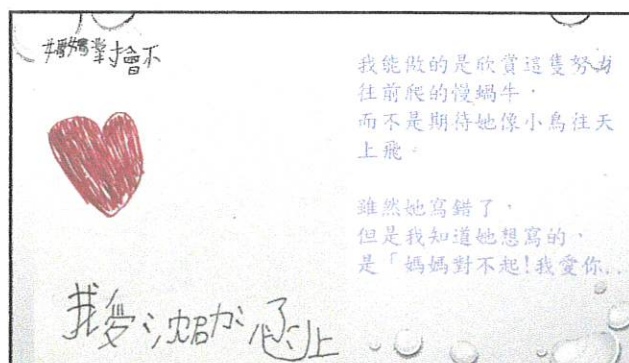 媽媽對會不
我能做的是欣賞這隻努力
往前爬的慢蝸牛,
而不是期待她像小鳥往天
上飛。
雖然她寫錯了,
但是我知道她想寫的,
是「媽媽對不起!我愛你..
我愛